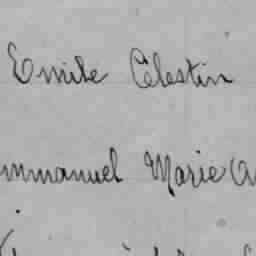 Emile Célestin
mmanuel Marie